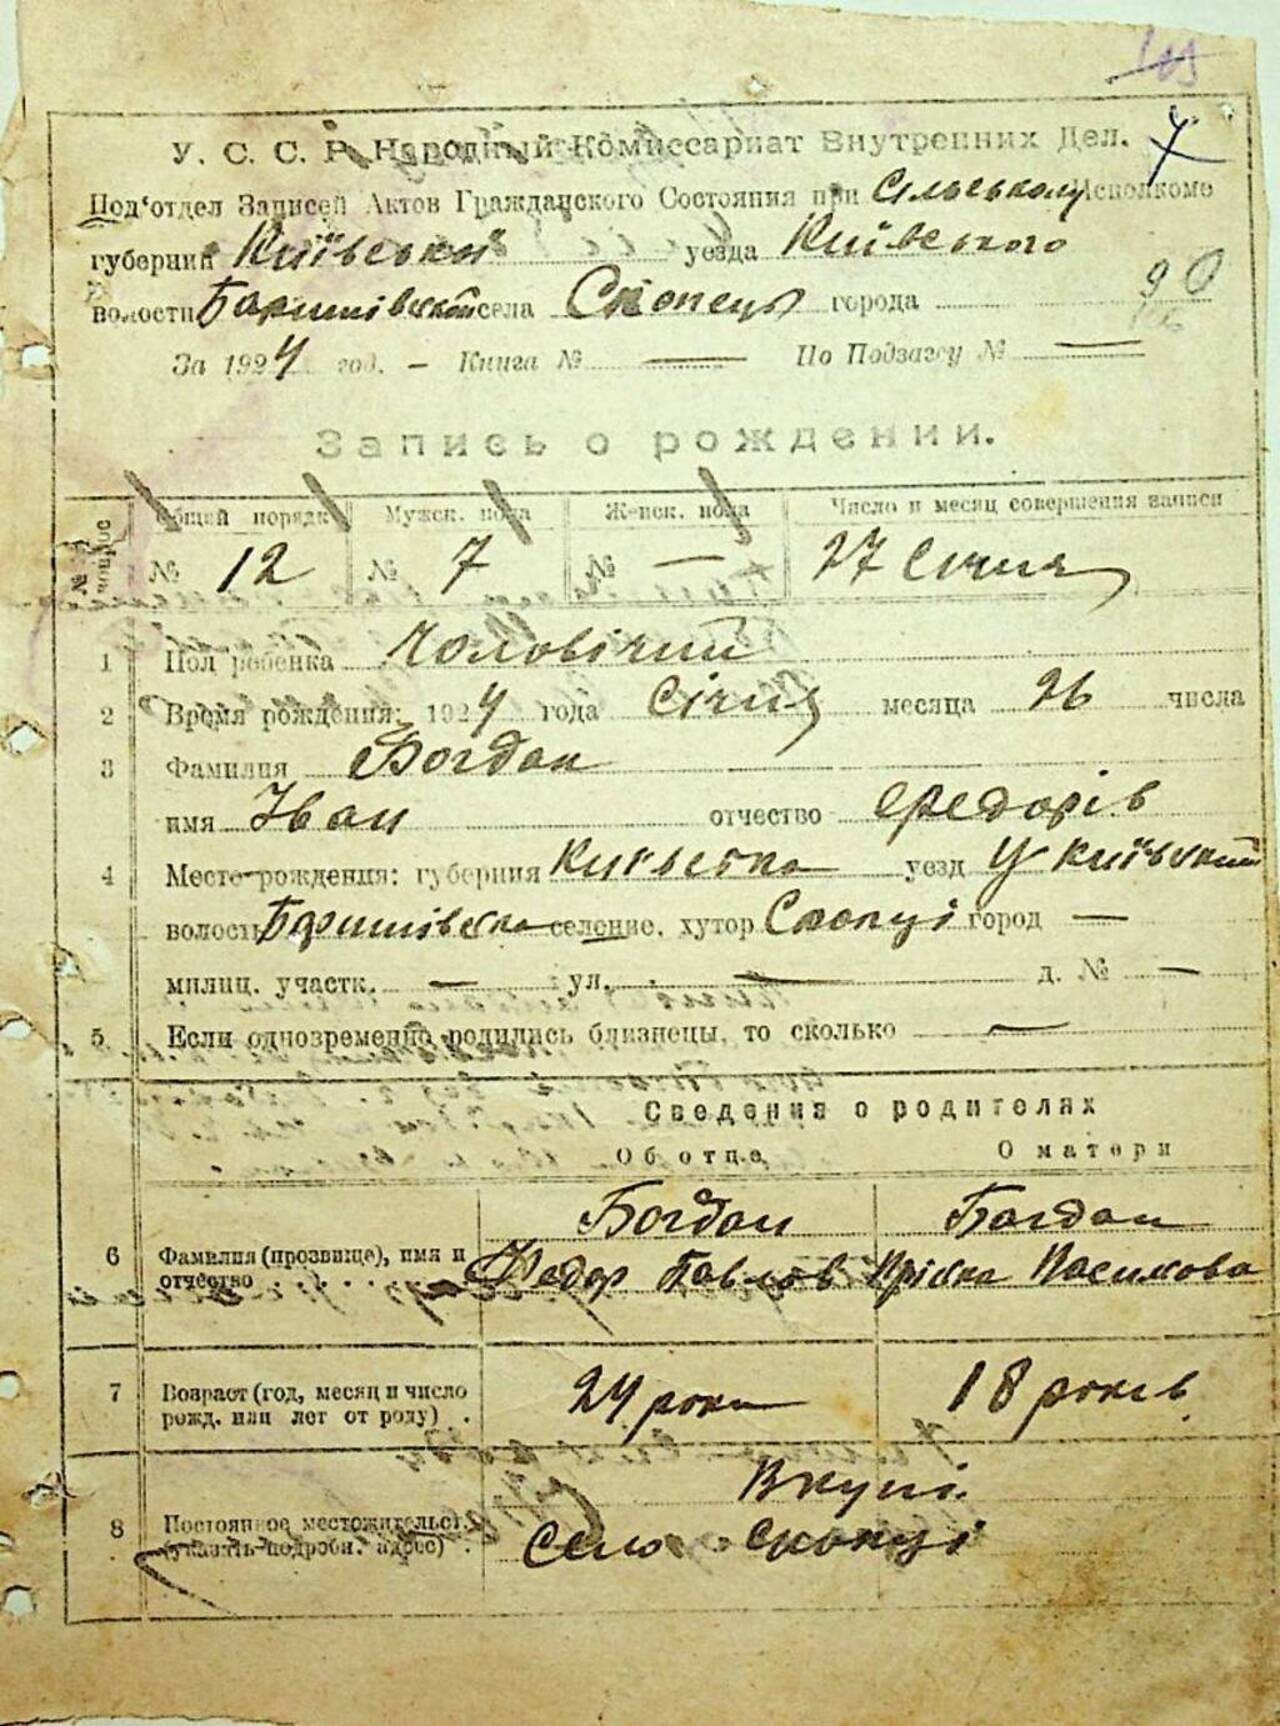 У. С. С. Р. Народный Комиссариат Внутренних Дел.
Под'отдел Записей Актов Гражданского Состояния при Сільському Исполкоме
губернии Київської уезда Київського
волости Баришівської села Скопець города
За 1924 год. — Книга № — По Подзагсу № —
Запись о рождении.
№ вопрос Общий порядк Мужск. пола Женск. пола Число и месяц совершения записи
№ 12 № 7 № — 27 Січня
1 Пол ребенка Чоловічий
2 Время рождения: 1924 года Січня месяца 26 числа
3 Фамилия Богдан
имя Іван отчество Федорів
4 Место рождения: губерния Київська уезд У Київський
волость Баришівська селение, хутор Скопці город —
милиц. участк. — ул. — д. № —
5 Если одновременно родились близнецы, то сколько —
Сведения о родителях
Об отце О матери
Богдан Богдан
6 Фамилия (прозвище), имя и
отчество . . . . . Федор Павлов Пріська
7 Возраст (год, месяц и число
рожд. или лет от роду) . 24 роки 18 років
Вкупі
8 Постоянное местожительст.
(указать подробн. адрес) . Село Скопці